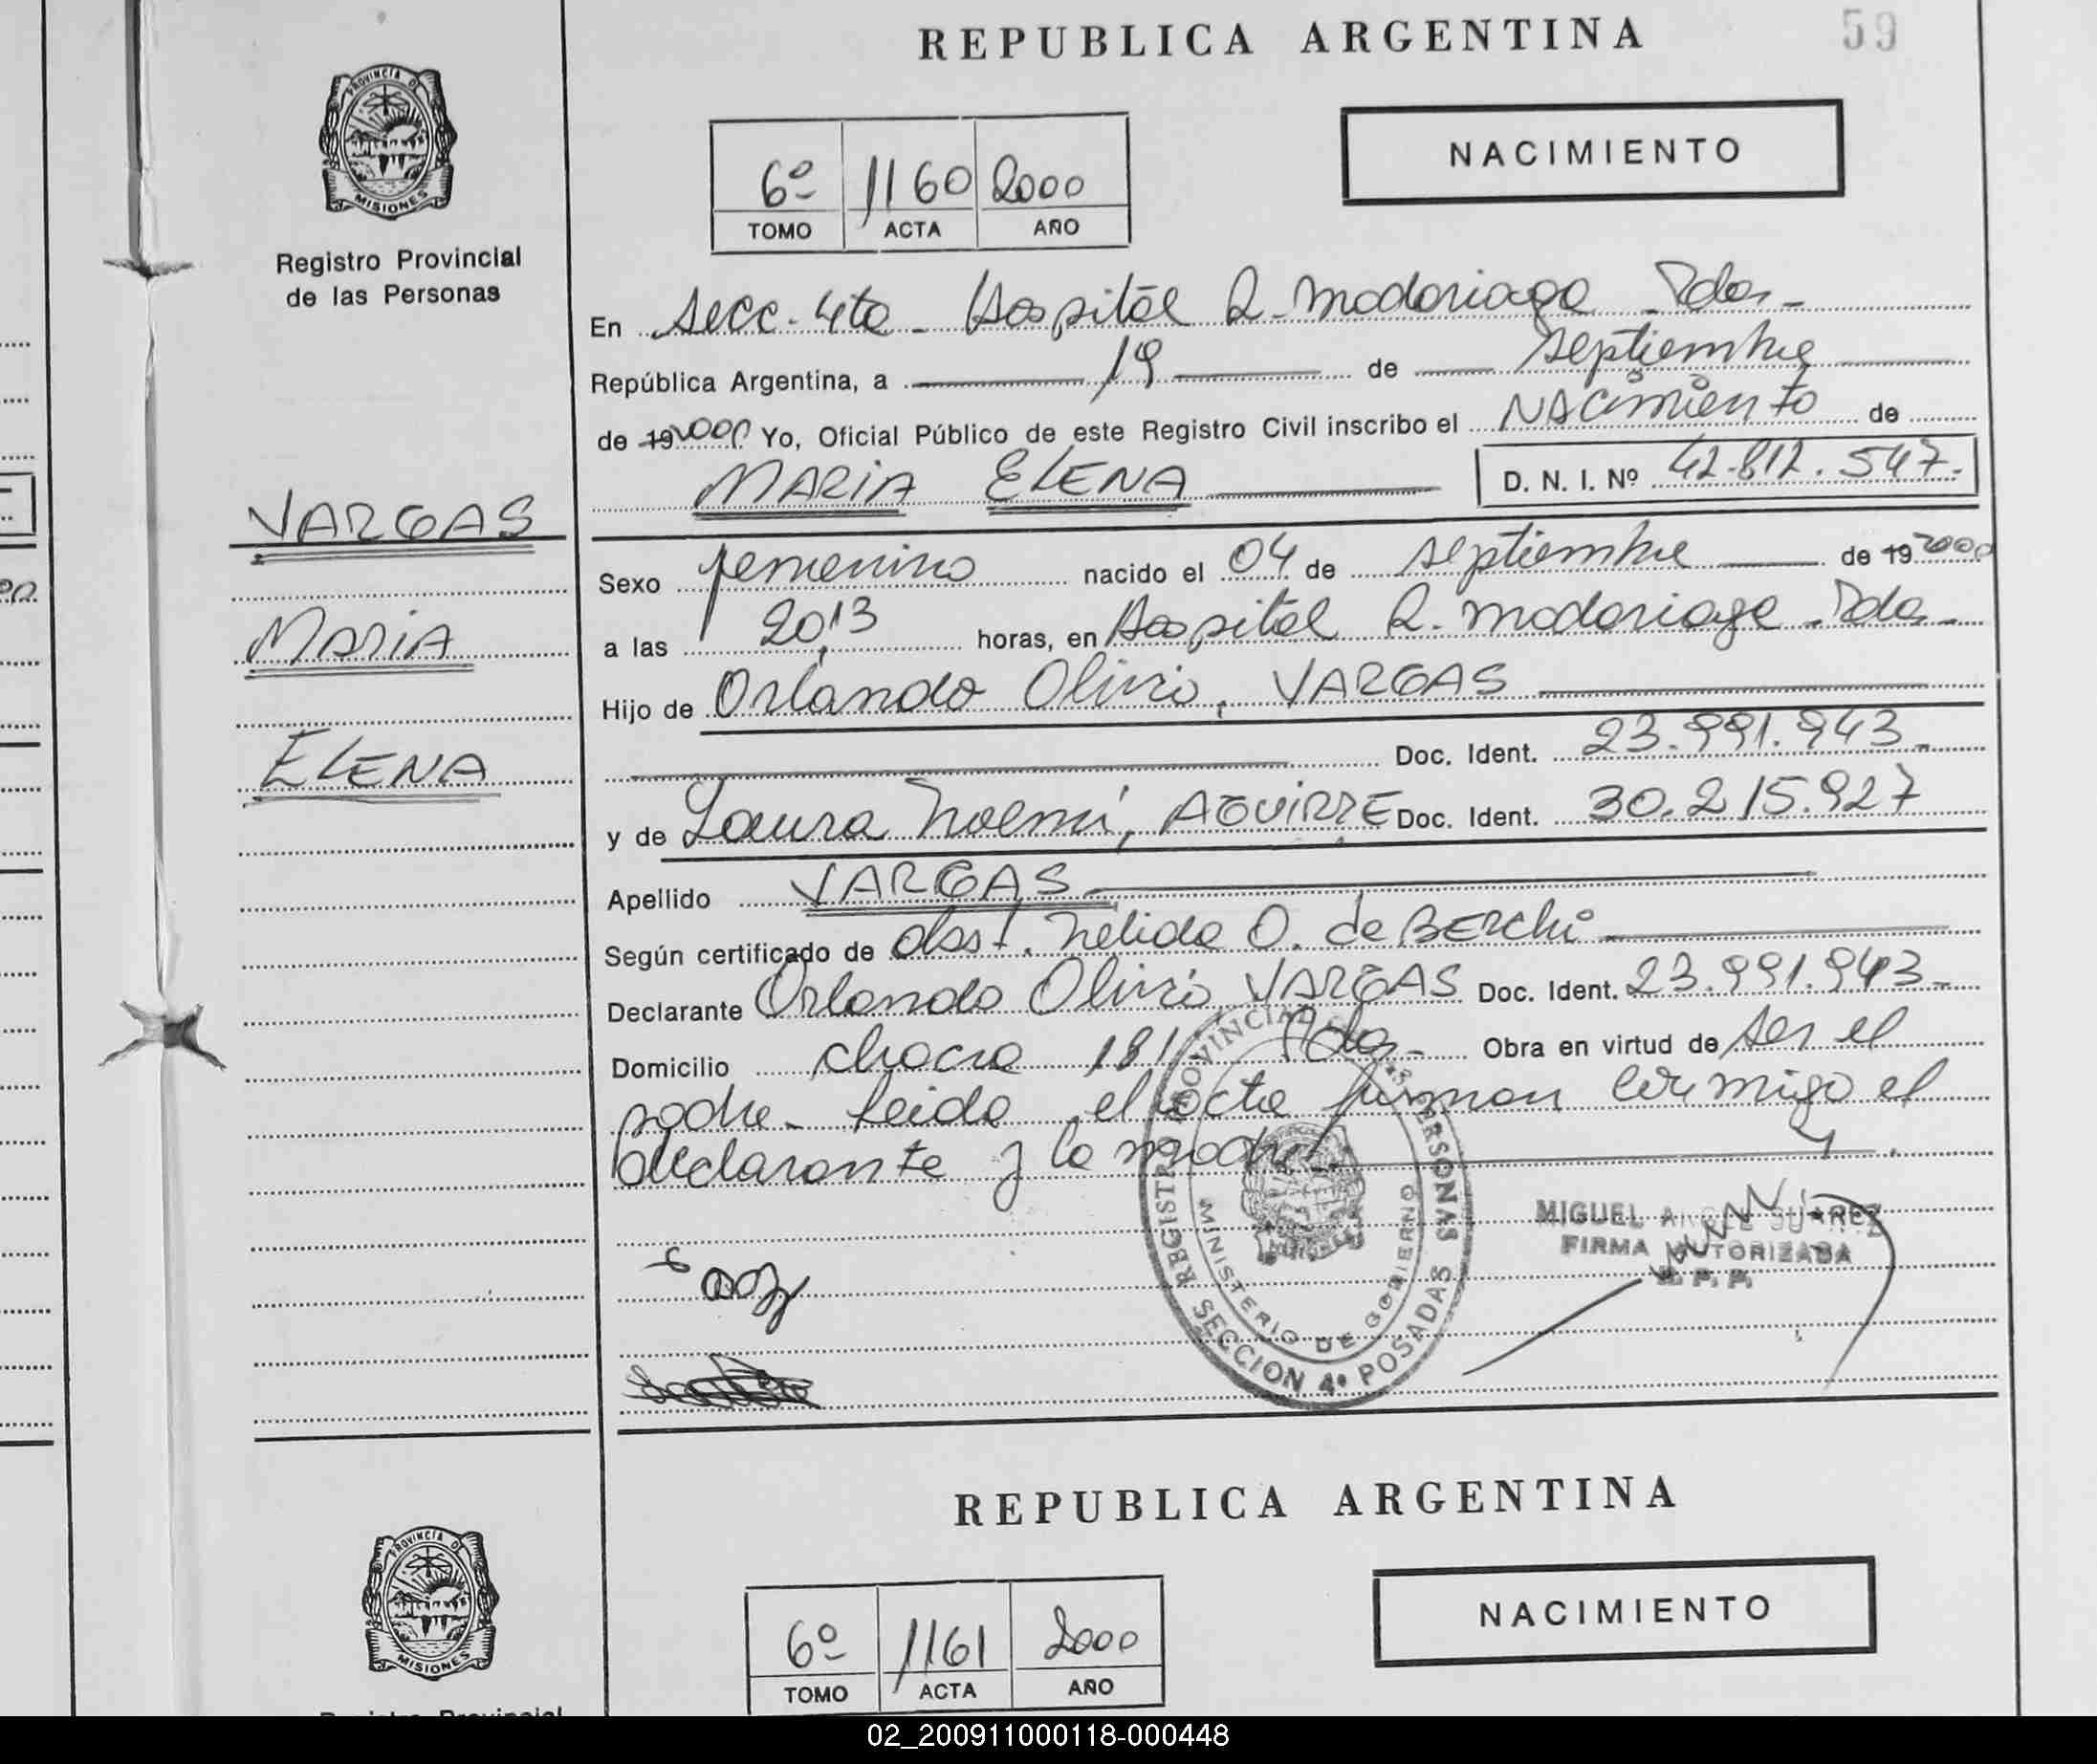 REPUBLICA ARGENTINA
59
PROVINCIA D
MISIONES
Registro Provincial
de las Personas
6º 1160 2000
TOMO ACTA AÑO
NACIMIENTO
En Secc. 4ta - Hospital R. Madariaga - Pdas -
República Argentina, a 19 de septiembre
de 19 2000 Yo, Oficial Público de este Registro Civil inscribo el Nacimiento de
MARIA ELENA
D. N. I. Nº 42.812.547.-
VARGAS
MARIA
ELENA
Sexo femenino nacido el 04 de septiembre de 19 2000
a las 20,13 horas, en Hospital R. Madariaga - Pdas -
Hijo de Orlando Olivio, VARGAS
Doc. Ident. 23.991.943.-
y de Laura Noemí, AGUIRRE Doc. Ident. 30.215.927
Apellido VARGAS
Según certificado de obst. Nelida O. de BERchi
Declarante Orlando Olivio VARGAS Doc. Ident. 23.991.943.-
Domicilio chacra 181 Pdas - Obra en virtud de ser el
padre - Leida el acta firman conmigo el
declarante y la madre
REGISTRO PROVINCIAL DE LAS PERSONAS
MINISTERIO DE GOBIERNO
SECCION 4ª POSADAS
MIGUEL ANGEL SUAREZ
FIRMA AUTORIZADA
R. P. P.
REPUBLICA ARGENTINA
PROVINCIA D
MISIONES
6º 1161 2000
TOMO ACTA AÑO
NACIMIENTO
Registro Provincial
02_200911000118-000448